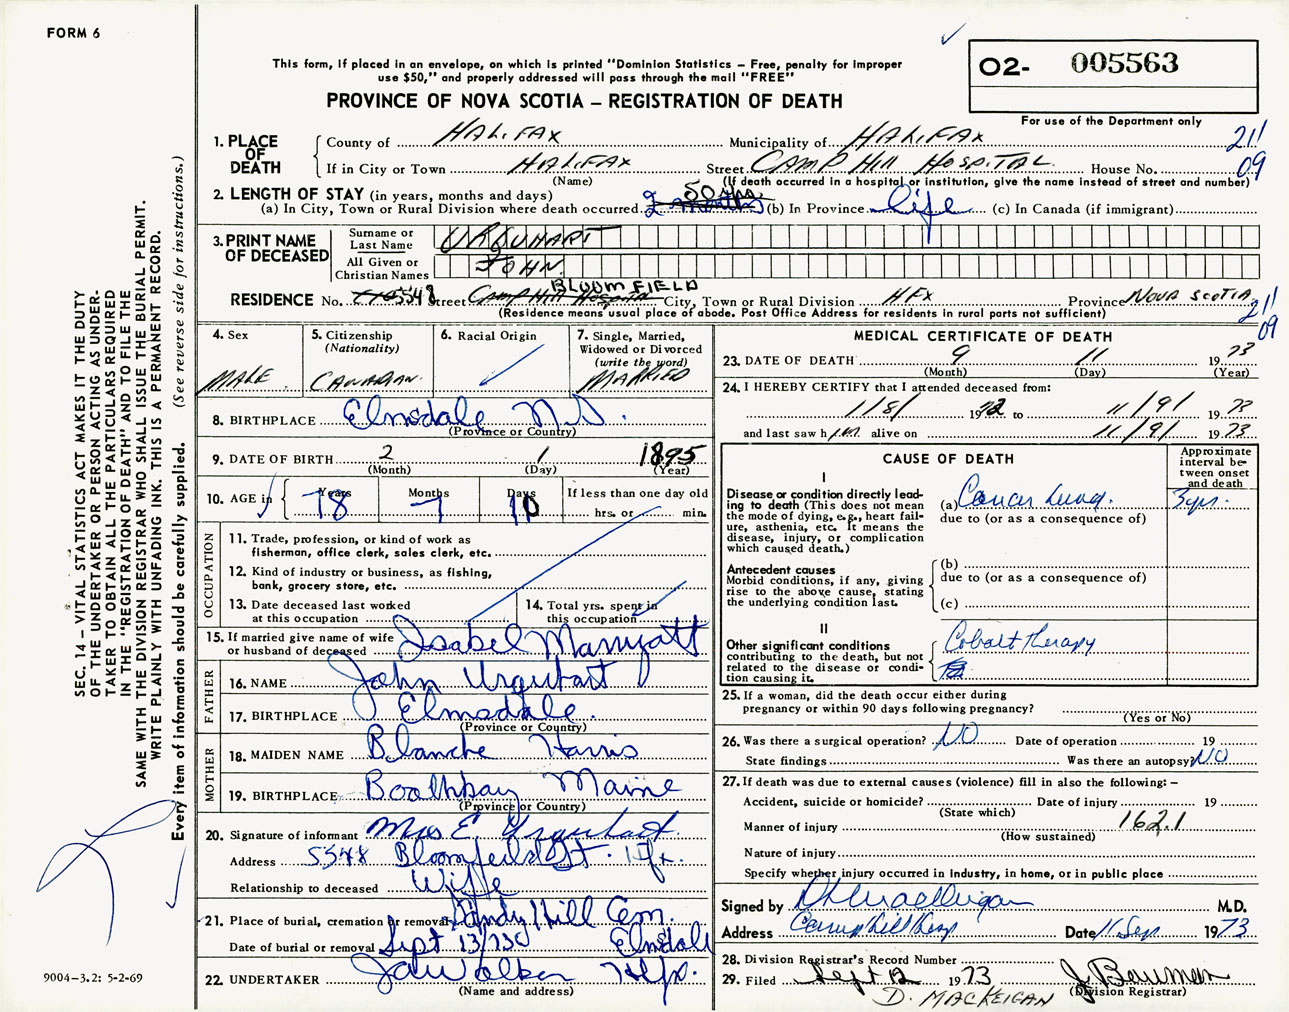 FORM 6
This form, if placed in an envelope, on which is printed "Dominion Statistics – Free, penalty for improper
use $50," and properly addressed will pass through the mail "FREE"
PROVINCE OF NOVA SCOTIA – REGISTRATION OF DEATH
O2- 005563
For use of the Department only
1. PLACE OF DEATH
County of HALIFAX Municipality of HALIFAX
211
If in City or Town HALIFAX Street CAMP HILL HOSPITAL House No.
09
(Name) (If death occurred in a hospital or institution, give the name instead of street and number)
2. LENGTH OF STAY (in years, months and days)
50 yrs
(a) In City, Town or Rural Division where death occurred 2 months (b) In Province life (c) In Canada (if immigrant)
3. PRINT NAME OF DECEASED
Surname or Last Name URQUHART
All Given or Christian Names JOHN
BLOOMFIELD
RESIDENCE No. 5548 Street Camp Hill Hospital City, Town or Rural Division HFX Province NOVA SCOTIA
(Residence means usual place of abode. Post Office Address for residents in rural parts not sufficient)
211
09
4. Sex
MALE
5. Citizenship
(Nationality)
CANADIAN
6. Racial Origin
7. Single, Married,
Widowed or Divorced
(write the word)
MARRIED
8. BIRTHPLACE Elmsdale N.S.
(Province or Country)
9. DATE OF BIRTH 2 1 1895
(Month) (Day) (Year)
10. AGE in
Years 78 Months 7 Days 10
If less than one day old
hrs. or min.
OCCUPATION
11. Trade, profession, or kind of work as
fisherman, office clerk, sales clerk, etc.
12. Kind of industry or business, as fishing,
bank, grocery store, etc.
13. Date deceased last worked
at this occupation
14. Total yrs. spent in
this occupation
15. If married give name of wife
or husband of deceased Isabel
FATHER
16. NAME John Urquhart
17. BIRTHPLACE Elmsdale.
(Province or Country)
MOTHER
18. MAIDEN NAME Blanche Harris
19. BIRTHPLACE Boothbay Maine
(Province or Country)
20. Signature of informant Mrs E. Urquhart
Address 5548 Bloomfield St. Hfx.
Relationship to deceased Wife
21. Place of burial, cremation or removal Sandy Hill Cem.
Date of burial or removal Sept 13/73 Elmsdale
22. UNDERTAKER Walker Hfx.
(Name and address)
MEDICAL CERTIFICATE OF DEATH
23. DATE OF DEATH 9 11 1973
(Month) (Day) (Year)
24. I HEREBY CERTIFY that I attended deceased from:
1/8/ 1972 to 11/9/ 1973
and last saw him alive on 11/9/ 1973
CAUSE OF DEATH
Approximate
interval be-
tween onset
and death
I
Disease or condition directly lead-
ing to death (This does not mean
the mode of dying, e.g., heart fail-
ure, asthenia, etc. It means the
disease, injury, or complication
which caused death.)
(a) Cancer Lung. 3 yrs.
due to (or as a consequence of)
Antecedent causes
Morbid conditions, if any, giving
rise to the above cause, stating
the underlying condition last.
(b)
due to (or as a consequence of)
(c)
II
Other significant conditions
contributing to the death, but not
related to the disease or condi-
tion causing it.
Cobalt Therapy
25. If a woman, did the death occur either during
pregnancy or within 90 days following pregnancy?
(Yes or No)
26. Was there a surgical operation? NO Date of operation 19
State findings Was there an autopsy? NO
27. If death was due to external causes (violence) fill in also the following: –
Accident, suicide or homicide? Date of injury 19
(State which)
Manner of injury 162.1
(How sustained)
Nature of injury
Specify whether injury occurred in industry, in home, or in public place
Signed by M.D.
Address Camp Hill Hosp Date 11 Sep 1973
28. Division Registrar's Record Number
29. Filed Sept 12 1973 J. Bauman
(Division Registrar)
D. MACKEIGAN
SEC. 14 – VITAL STATISTICS ACT MAKES IT THE DUTY
OF THE UNDERTAKER OR PERSON ACTING AS UNDER-
TAKER TO OBTAIN ALL THE PARTICULARS REQUIRED
IN THE "REGISTRATION OF DEATH" AND TO FILE THE
SAME WITH THE DIVISION REGISTRAR WHO SHALL ISSUE THE BURIAL PERMIT.
WRITE PLAINLY WITH UNFADING INK. THIS IS A PERMANENT RECORD.
Every item of information should be carefully supplied. (See reverse side for instructions.)
9004–3.2: 5-2-69